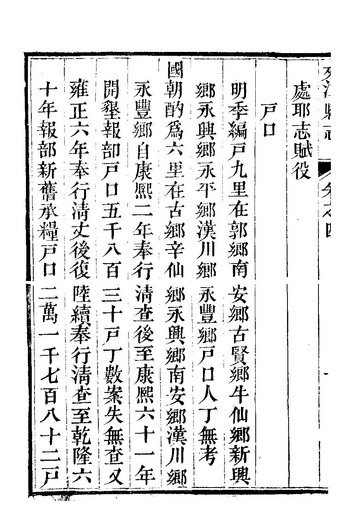 處耶志賦役
戶口
明季編戶九里在郭鄉南安鄉古賢鄉牛仙鄉新興
鄉永興鄉永平鄉漢川鄉永豐鄉戶口人丁無考
國朝酌爲六里在古鄉辛仙鄉永興鄉南安鄉漢川鄉
永豐鄉自康熙二年奉行清查後至康熙六十一年
開墾報部戶口五千八百三十戶丁數案失無查又
雍正六年奉行清丈後復陸續奉行清查至乾隆六
十年報部新舊承糧戶口二萬一千七百八十二戶